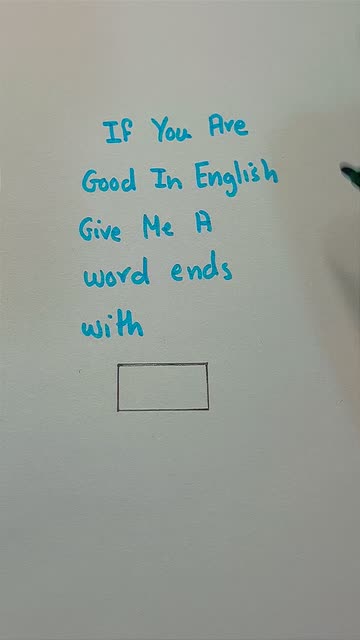 If You Are
Good In English
Give Me A
word ends
with